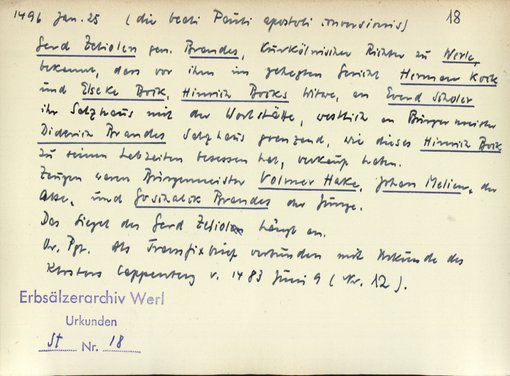 1496 Jan. 25 (die beati Pauli apostoli conversionis) 18
Gerd Zeliolen gen. Brandes, kurkölnischer Richter zu Werle,
bekennt, dass vor ihm im gehegten Gericht Herman Kock
und Elseke Boik, Hinrich Boiks Witwe, an Everd
ihr Salzhaus mit der Werkstätte, westlich an Bürgermeister
Diderich Brandes Salzhaus grenzend, wie dieses Hinrich Boik
zu seinen Lebzeiten besessen hat, verkauft haben.
Zeugen waren Bürgermeister Volmer Hake, Johan Melien, der
Alte, und Gosschalck Brandes der Junge.
Das Siegel des Gerd Zeliolen hängt an.
Or. Pgt. Als Transfixbrief verbunden mit Urkunde des
Klosters Cappenberg v. 1483 Juni 9 (Nr. 12).
Erbsälzerarchiv Werl
Urkunden
St Nr. 18